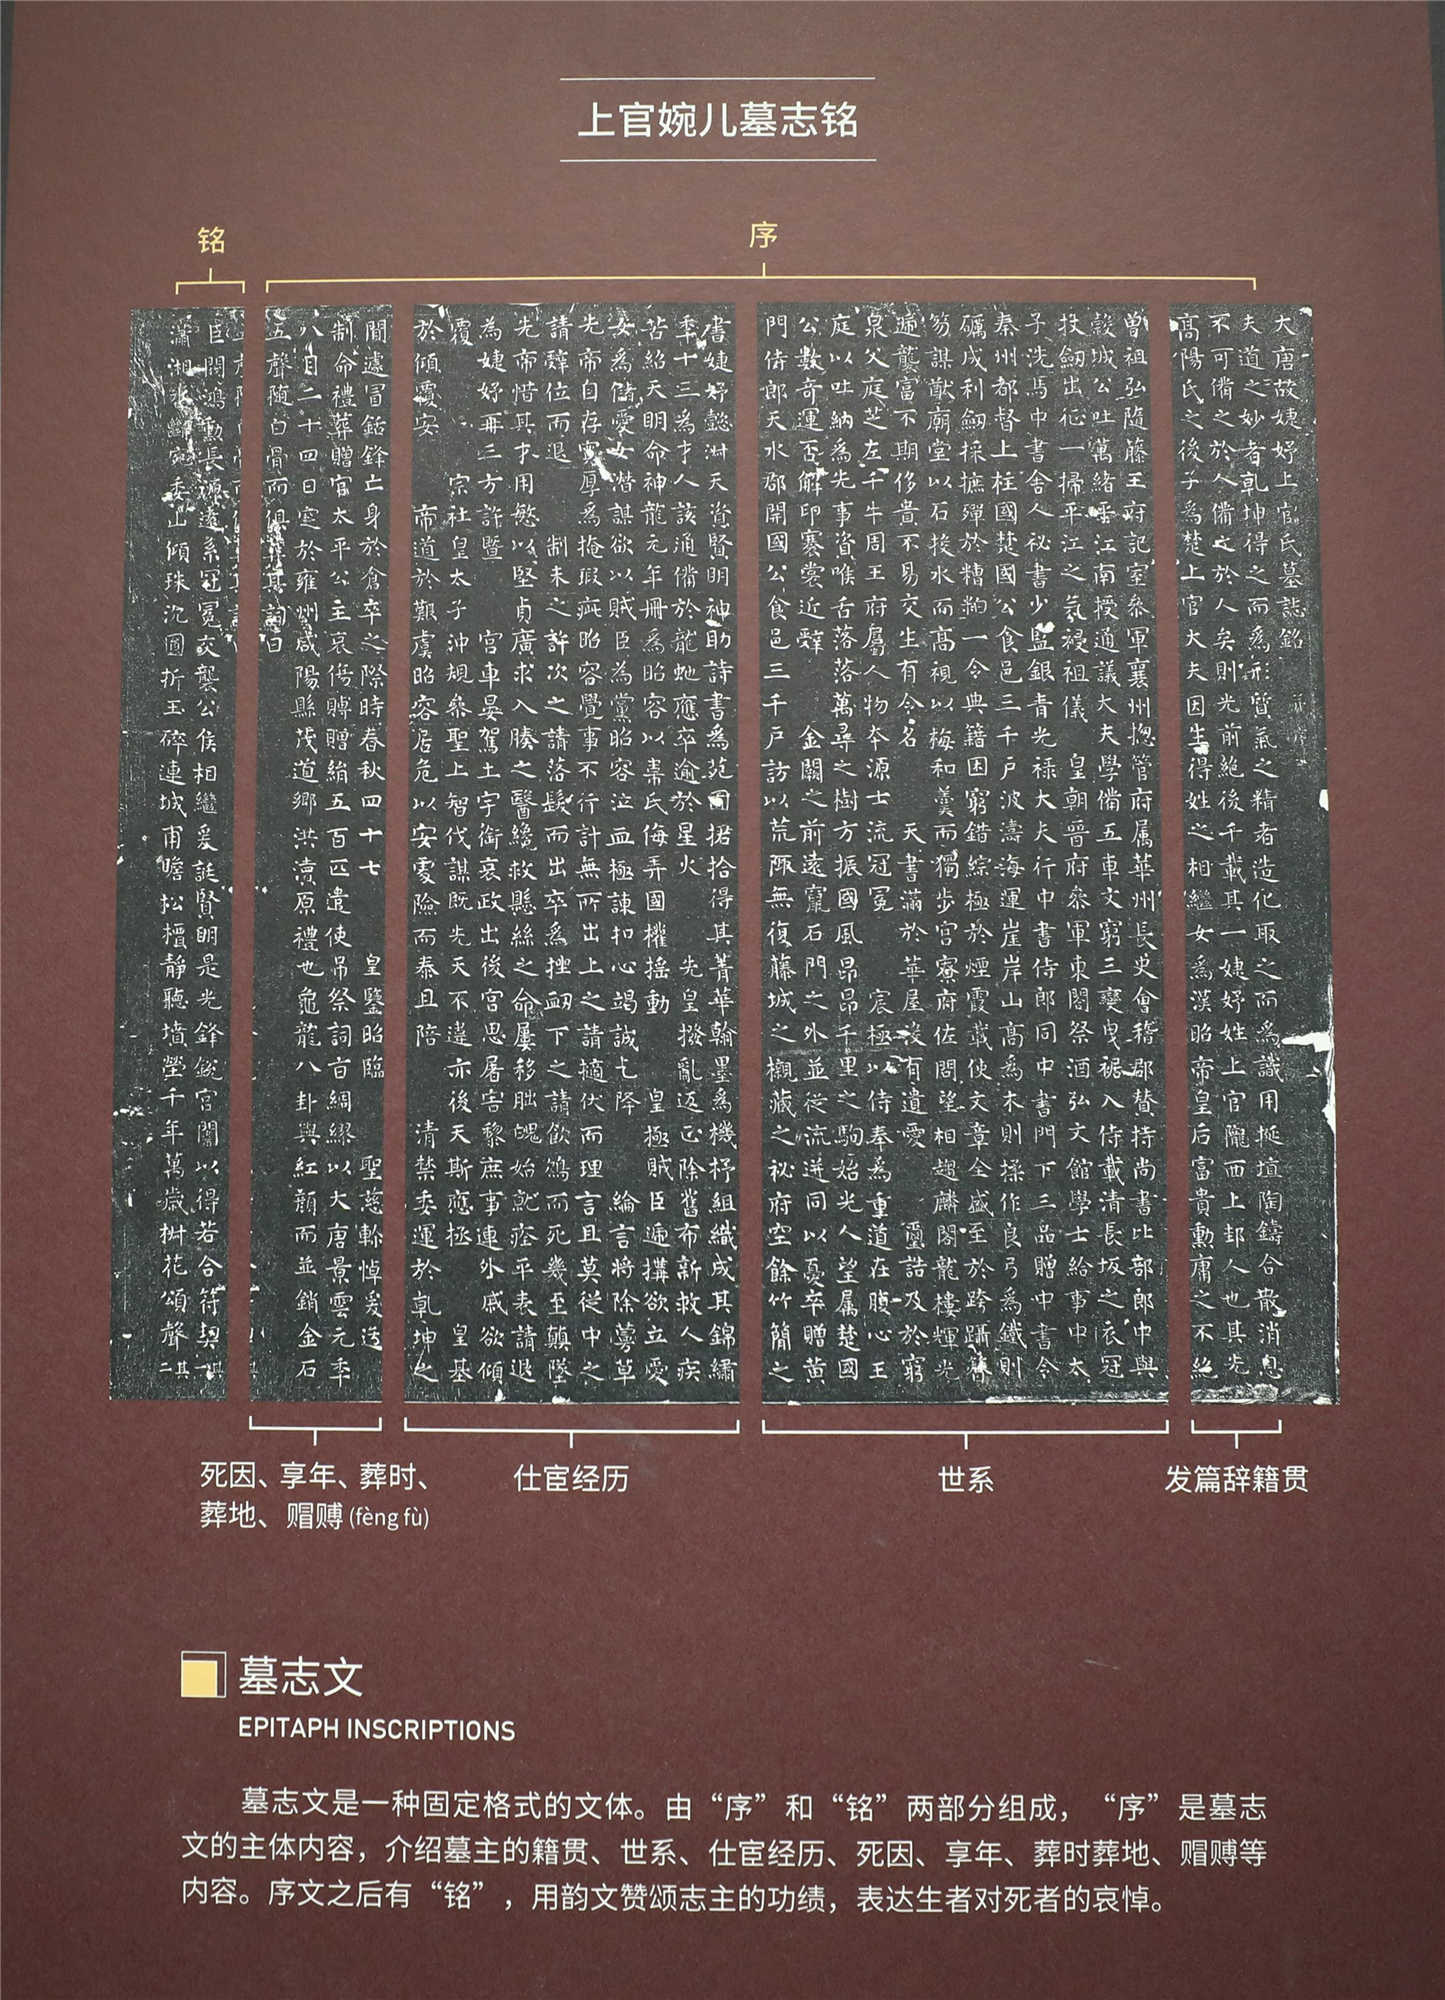 上官婉儿墓志铭
序
铭
大唐故婕妤上官氏墓誌銘
夫道之妙者乾坤得之而為形質氣之精者造化取之而為識用埏埴陶鑄合散消息
不可備之於人備之於人矣則光前絕後千載其一婕妤姓上官隴西上邽人也其先
高陽氏之後子為楚上官大夫因生得姓之相繼女為漢昭帝皇后富貴勳庸之不絕
曾祖弘隨藤王府記室參軍襄州揔管府属華州長史會稽郡贊持尚書比部郎中與
穀城公吐萬緒平江南授通議大夫學備五車文窮三變曳裾入侍載清長坂之衣冠
杖劒出征一掃平江之氛祲祖儀 皇朝晉府參軍東閣祭酒弘文館學士給事中太
子洗馬中書舍人祕書少監銀青光禄大夫行中書侍郎同中書門下三品贈中書令
秦州都督上柱國楚國公食邑三千戶波濤海運崖岸山高為木則揉作良弓為鐵則
礪成利劒採摭殫於糟粕一令典籍困窮錯綜極於煙霞載使文章全盛至於跨躡簪
笏謀猷廟堂以石投水而高視以梅和羹而獨步宮寮府佐問望相趨麟閣龍樓輝光
遞襲富不期侈貴不易交生有令名 天書滿於華屋沒有遺愛 璽誥及於窮
泉父庭芝左千牛周王府屬人物本源士流冠冕 宸極以侍奉為重道在腹心王
庭以吐納為先事資喉舌落落萬尋之樹方振國風昂昂千里之駒始光人望属楚國
公數奇運否解印褰裳近辭 金闕之前遠竄石門之外並從流迸同以憂卒贈黃
門侍郎天水郡開國公食邑三千戶訪以荒陬無復藤城之櫬藏之祕府空餘竹簡之
書婕妤懿淑天資賢明神助詩書為苑囿捃拾得其菁華翰墨為機杼組織成其錦繡
年十三為才人該通備於龍蛇應卒逾於星火 先皇撥亂返正除舊布新救人疾
苦紹天明命神龍元年冊為昭容以韋氏侮弄國權搖動 皇極賊臣遞搆欲立愛
女為儲愛女潛謀欲以賊臣為黨昭容泣血極諫扣心竭誠乞降 綸言將除蔓草
先帝自存寬厚為掩瑕疵昭容覺事不行計無所出上之請擿伏而理言且莫從中之
請辭位而退 制未之許次之請落髮而出卒為挫衂下之請飲鴆而死幾至顛墜
先帝惜其才用慜以堅貞廣求入腠之醫纔救懸絲之命屢移朏魄始就痊平表請退
為婕妤再三方許暨 宮車晏駕土宇銜哀政出後宮思屠害黎庶事連外戚欲傾
覆 宗社皇太子沖規參聖上智伐謀既先天不違亦後天斯應拯 皇基
於傾覆安 帝道於艱虞昭容居危以安處險而泰且陪 清禁委運於乾坤之
閒遽冒銛鋒亡身於倉卒之際時春秋四十七 皇鑒昭臨 聖慈軫悼爰造
制命禮葬贈官太平公主哀傷賻贈絹五百匹遣使弔祭詞旨綢繆以大唐景雲元年
八月二十四日窆於雍州咸陽縣茂道鄉洪瀆原禮也龜龍八卦與紅顏而並銷金石
五聲隨白骨而俱葬其詞曰
巨閥鴻勳長源遠系冠冕交襲公侯相繼爰誕賢明是光鋒銳宮闈以得若合符契其一
瀟湘水斷宛委山傾珠沉圓折玉碎連城甫瞻松檟靜聽墳塋千年萬歲椒花頌聲其二
发篇辞籍贯
世系
仕宦经历
死因、享年、葬时、
葬地、赗赙(fèng fù)
墓志文
EPITAPH INSCRIPTIONS
墓志文是一种固定格式的文体。由“序”和“铭”两部分组成，“序”是墓志
文的主体内容，介绍墓主的籍贯、世系、仕宦经历、死因、享年、葬时葬地、赗赙等
内容。序文之后有“铭”，用韵文赞颂志主的功绩，表达生者对死者的哀悼。